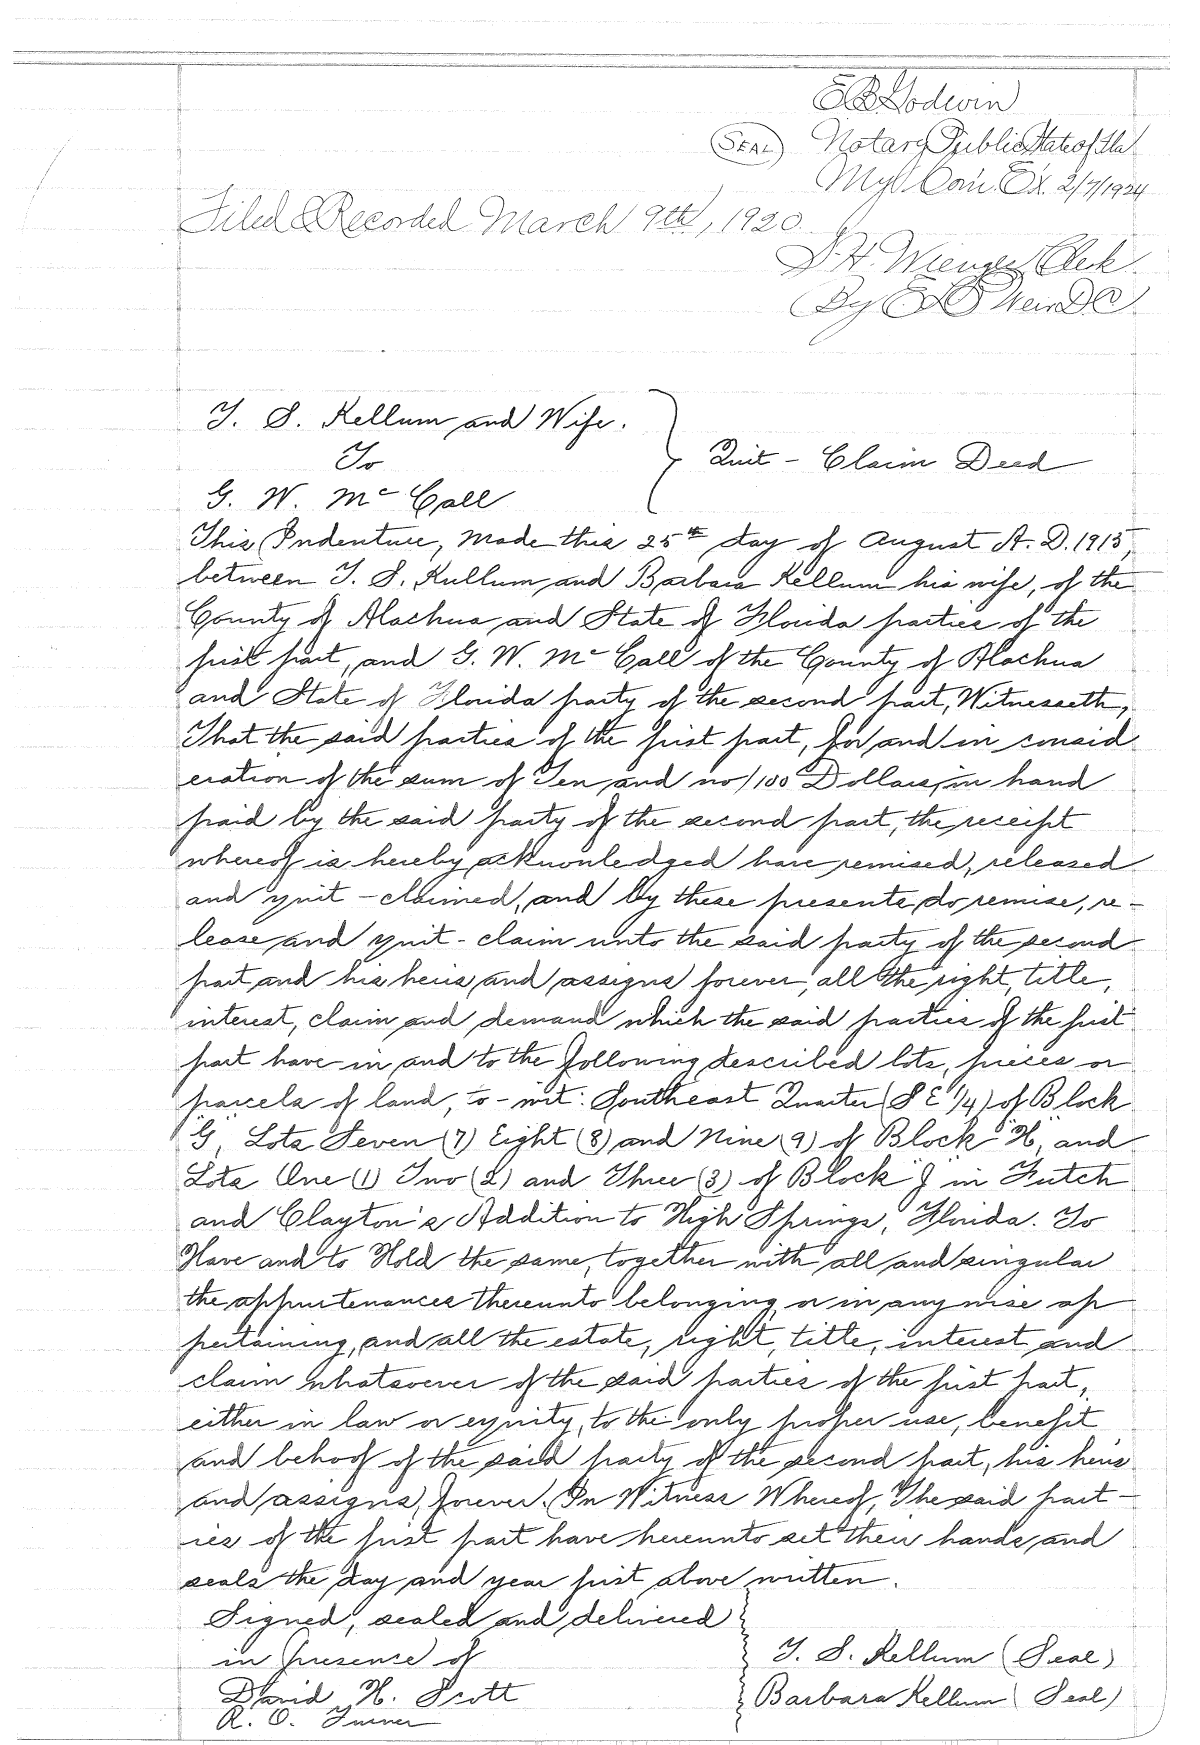 E B Godwin
(SEAL) Notary Public State of Fla
My Com. Ex. 2/7/1924
Filed & Recorded March 9th, 1920.
S. H. Wienges Clerk.
By E D Weir D C
T. S. Kellum and Wife.
To
G. W. McCall
Quit - Claim Deed
This Indenture, Made this 25th day of August A. D. 1913,
between T. S. Kullum and Barbara Kellum his wife, of the
County of Alachua and State of Florida parties of the
first part, and G. W. McCall of the County of Alachua
and State of Florida party of the second part, Witnesseth,
That the said parties of the first part, for and in consid
eration of the sum of Ten and no/100 Dollars, in hand
paid by the said party of the second part, the receipt
whereof is hereby acknowledged have remised, released
and quit - claimed, and by these presents do remise, re-
lease and quit - claim unto the said party of the second
part and his heirs and assigns forever, all the right, title,
interest, claim and demand which the said parties of the first
part have in and to the following described lots, pieces or
parcels of land, to - wit: Southeast Quarter (S E 1/4) of Block
"G", Lots Seven (7) Eight (8) and Nine (9) of Block "H", and
Lots One (1) Two (2) and Three (3) of Block "J" in Futch
and Clayton's Addition to High Springs, Florida. To
Have and to Hold the same, together with all and singular
the appurtenances thereunto belonging or in any wise ap
pertaining, and all the estate, right, title, interest and
claim whatsoever of the said parties of the first part,
either in law or equity, to the only proper use, benefit
and behoof of the said party of the second part, his heirs
and assigns, forever. In Witness Whereof, The said part-
ies of the first part have hereunto set their hands and
seals the day and year first above written.
Signed, sealed and delivered
in presence of
David H. Scott
R. O. Turner
T. S. Kellum (Seal)
Barbara Kellum (Seal)